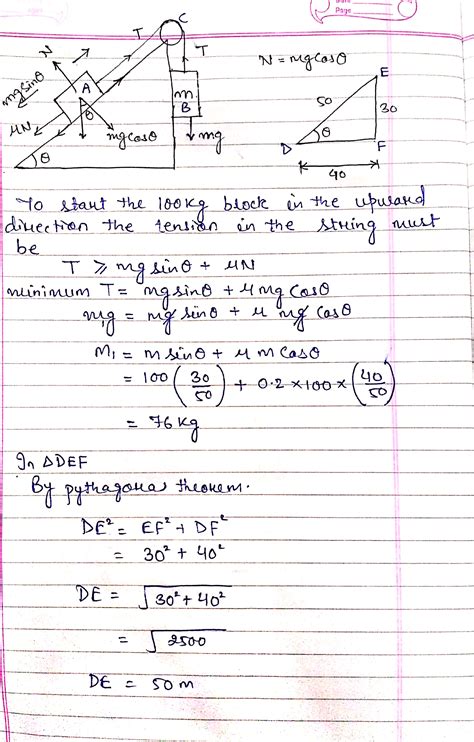 Page
C
T
T
N
mg sinθ
A
m
B
μN
θ
mg cosθ
mg
θ
N = mg cosθ
E
50
30
θ
D
F
40
To start the 100kg block in the upward
direction the tension in the string must
be
T ⩾ mg sinθ + μN
minimum T = mg sinθ + μ mg cosθ
m₁g = mg sinθ + μ mg cosθ
M₁ = m sinθ + μ m cosθ
= 100 (30/50) + 0.2 × 100 × (40/50)
= 76 kg
In ΔDEF
By pythagoras theorem.
DE² = EF² + DF²
= 30² + 40²
DE = √30² + 40²
= √2500
DE = 50 m